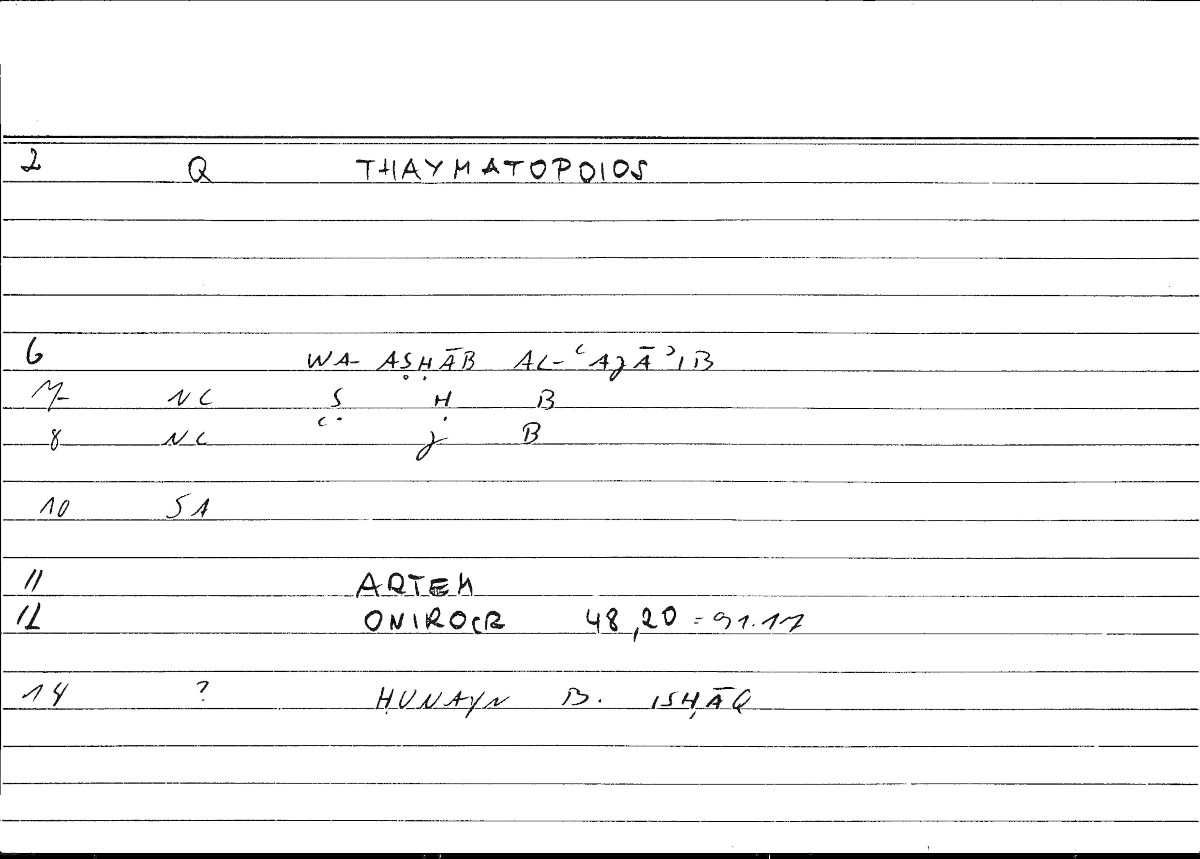 2 Q THAYMATOPOIOS
6 WA- AṢḤĀB AL-ʿAJĀʾIB
7 NC Ṣ Ḥ B
8 NC ʿ J B
10 SA
11 ARTEM
12 ONIROCR 48,20 = 91.17
14 ? ḤUNAYN B. ISḤĀQ